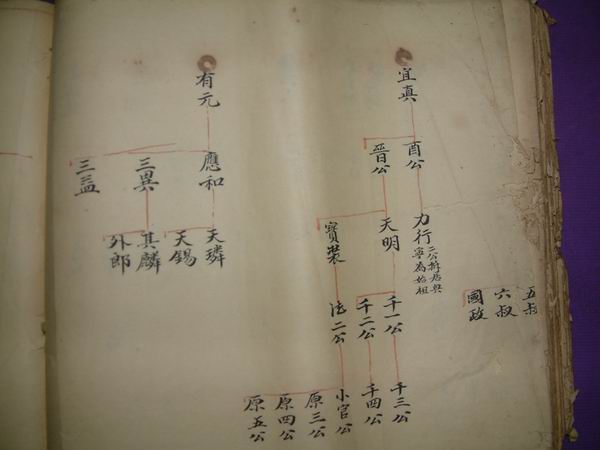 五叔
六叔
國政
宜真
酉公
晉公
力行
二公
寧為始祖
天明
寶裝
千一公
千二公
法二公
千三公
千四公
小官公
原三公
原四公
原五公
有元
應和
三異
三益
天璘
天錫
其麟
外郎